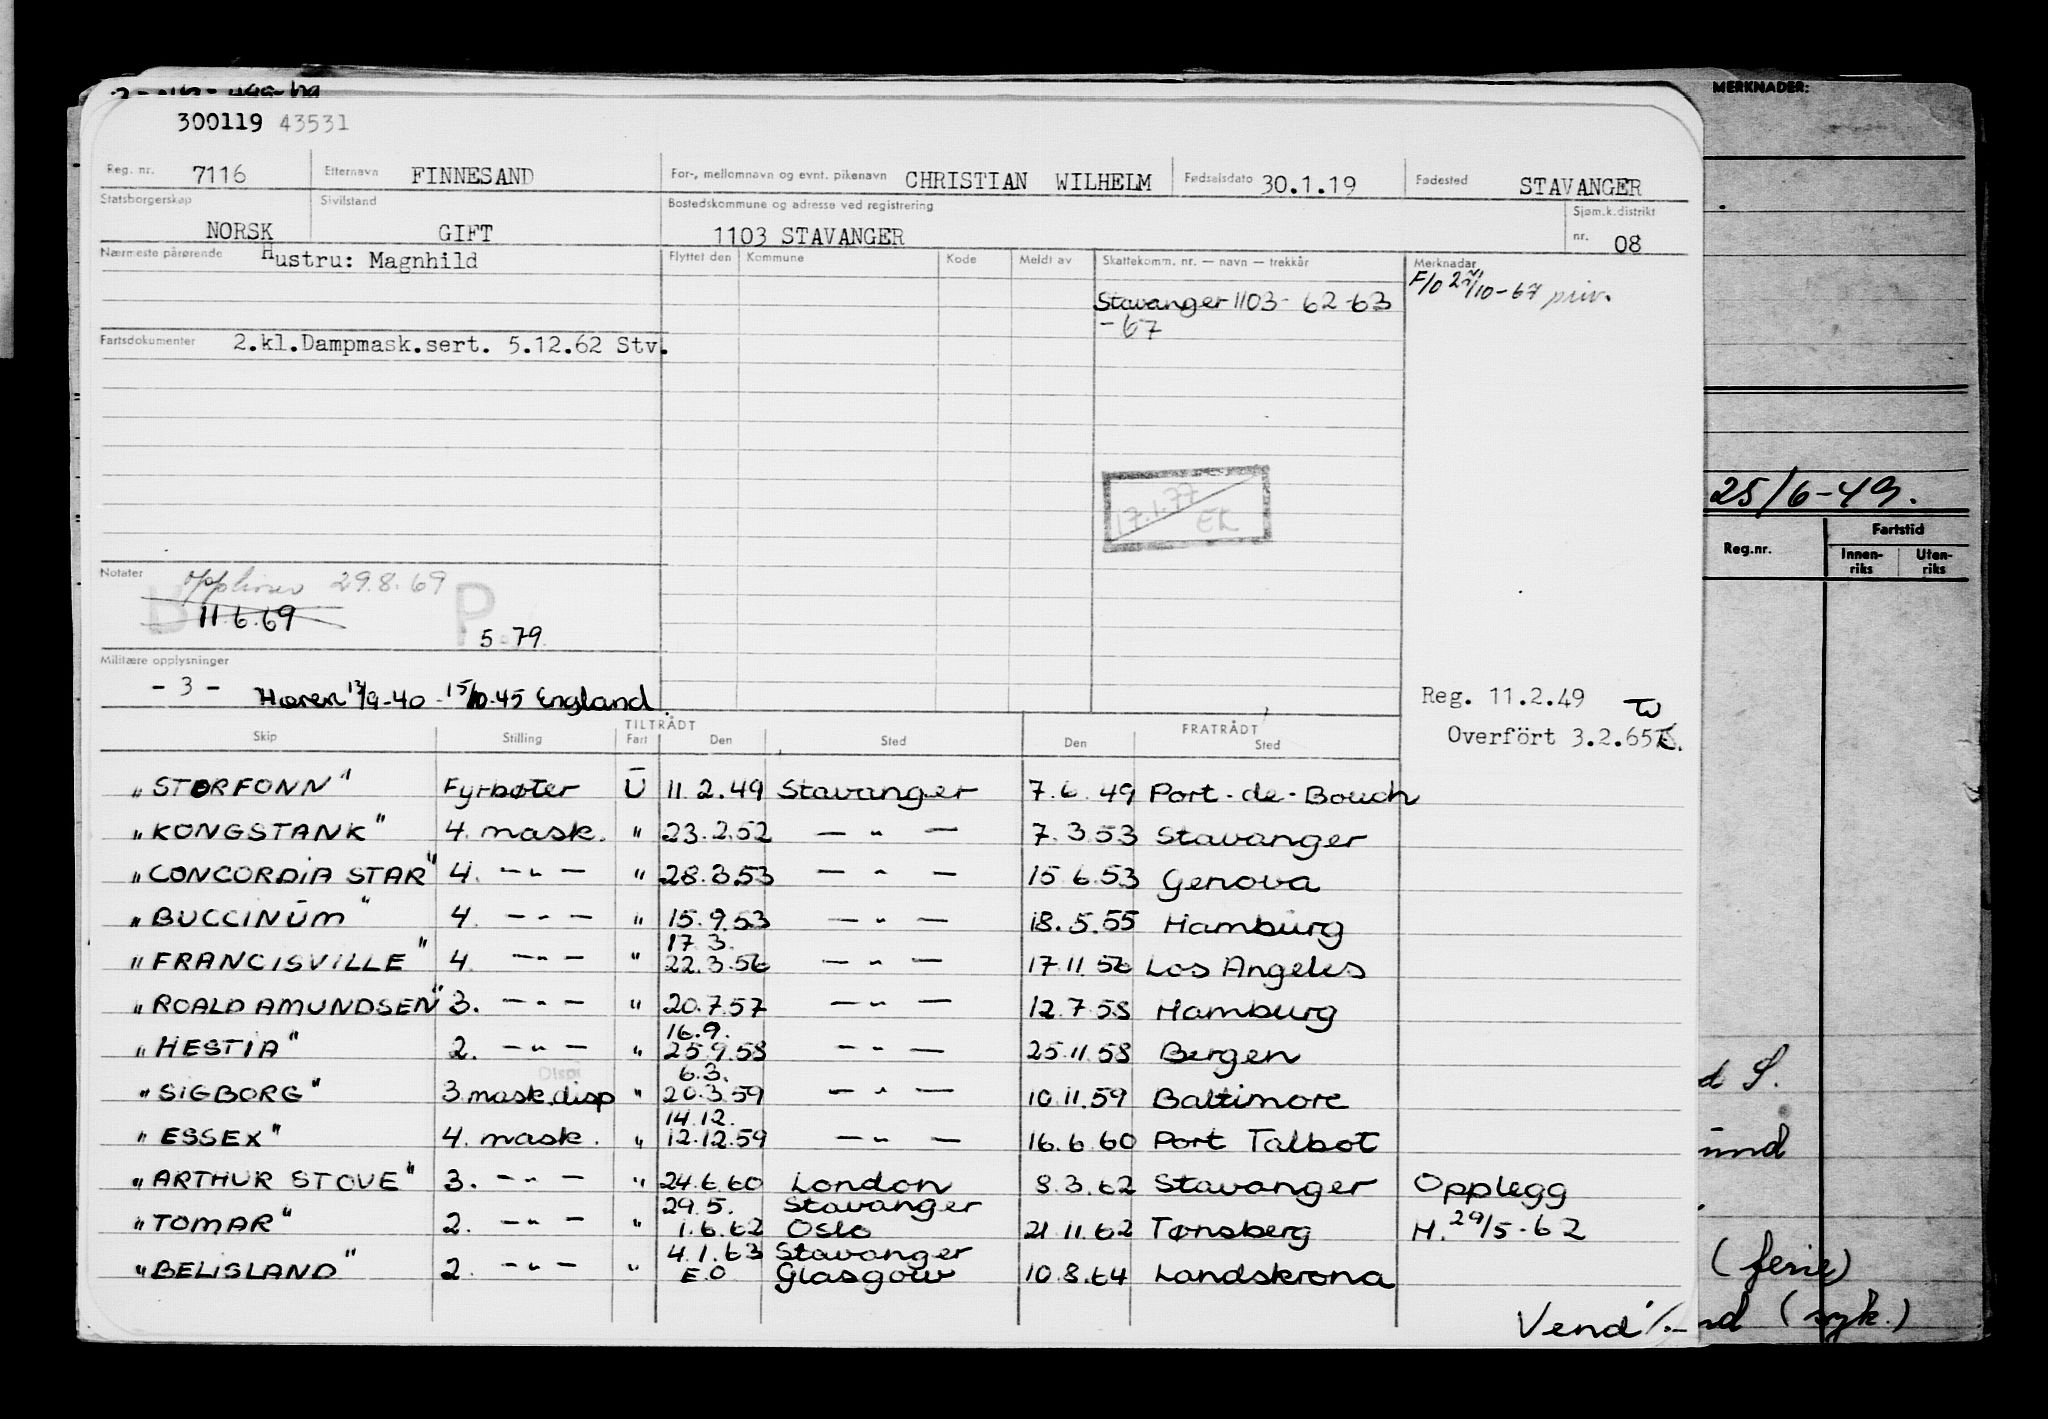 MERKNADER:
300119 43531
Reg. nr. 7116 Etternavn FINNESAND For-, mellomnavn og evnt. pikenavn CHRISTIAN WILHELM Fødselsdato 30.1.19 Fødested STAVANGER
Statsborgerskap NORSK Sivilstand GIFT Bostedskommune og adresse ved registrering 1103 STAVANGER Sjøm.k.distrikt nr. 08
Nærmeste pårørende Hustru: Magnhild Flyttet den Kommune Kode Meldt av Skattekomm. nr. — navn — trekkår Merknader
F/O 27/10-67 priv.
Stavanger 1103 - 62-63
-67
Fartsdokumenter 2.kl.Dampmask.sert. 5.12.62 Stv.
17.1.77
EK
25/6-49.
Reg.nr. Fartstid
Innen-riks Uten-riks
Notater 29.8.69
D 11.6.69 P 5.79.
Militære opplysninger
- 3 - Hæren 13/9-40 - 15/10-45 England.
Reg. 11.2.49
Overfört 3.2.65
TILTRÅDT FRATRÅDT
Skip Stilling Fart Den Sted Den Sted
"STORFONN" Fyrbøter U 11.2.49 Stavanger 7.6.49 Port-de-Bouch
"KONGSTANK" 4. mask. " 23.2.52 — " — 7.3.53 Stavanger
"CONCORDIA STAR" 4. — " — " 28.3.53 — " — 15.6.53 Genova
"BUCCINUM" 4. — " — " 15.9.53 — " — 18.5.55 Hamburg
17.3.
"FRANCISVILLE" 4. — " — " 22.3.56 — " — 17.11.56 Los Angeles
"ROALD AMUNDSEN" 3. — " — " 20.7.57 — " — 12.7.58 Hamburg
16.9.
"HESTIA" 2. — " — " 25.9.58 — " — 25.11.58 Bergen
Disp 6.3.
"SIGBORG" 3 mask.disp " 20.3.59 — " — 10.11.59 Baltimore
14.12.
"ESSEX" 4. mask. " 12.12.59 — " — 16.6.60 Port Talbot
"ARTHUR STOVE" 3. — " — " 24.6.60 London 8.3.62 Stavanger Opplegg
29.5. Stavanger
"TOMAR" 2. — " — " 1.6.62 Oslo 21.11.62 Tønsberg H. 29/5-62
4.1.63 Stavanger
"BELISLAND" 2. — " — " E.O Glasgow 10.8.64 Landskrona
d S.
und
(ferie)
nd (syk.)
Vend